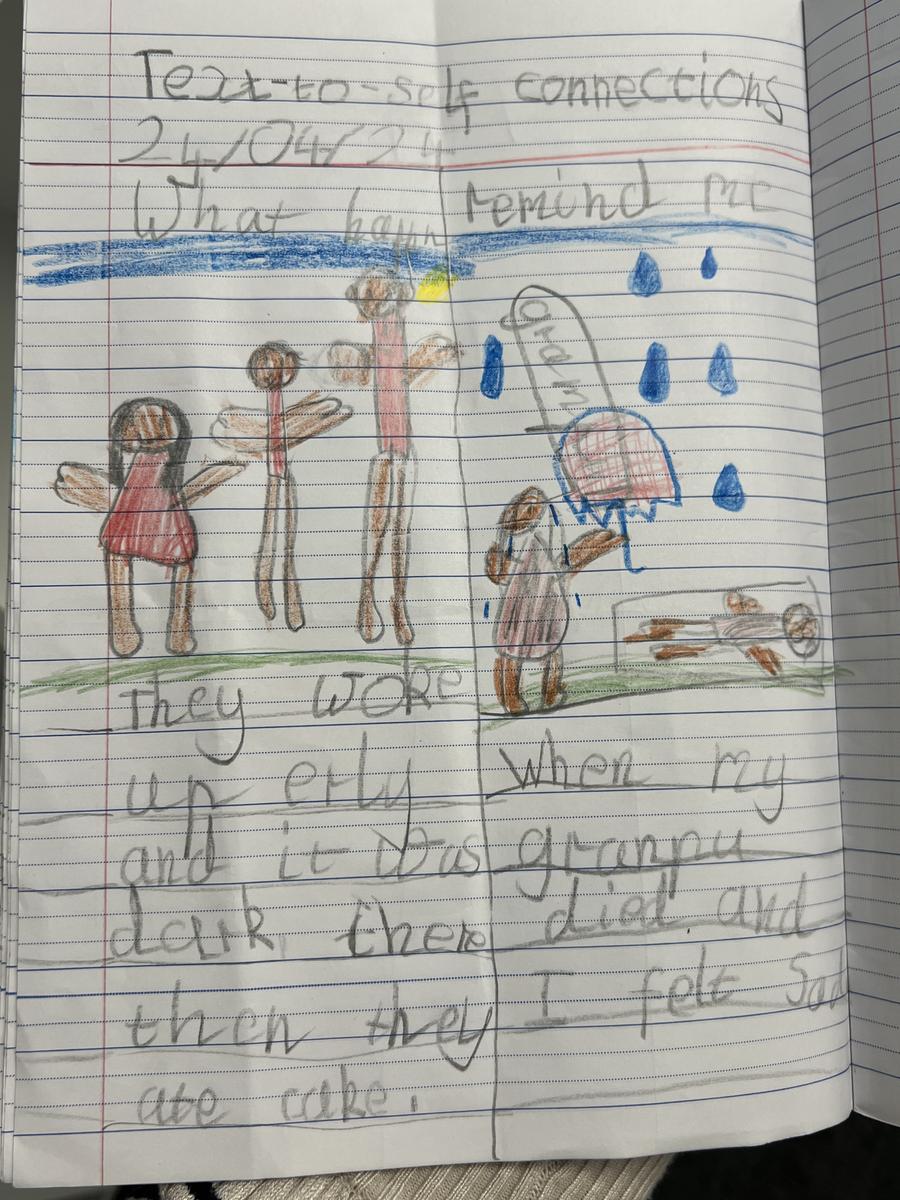 Text-to-self connections
24/04/24
What happn
remind me
gram
They woke
up erly
and it was
dark there
then they
ate cake.
When my
granpu
died and
I felt Sad